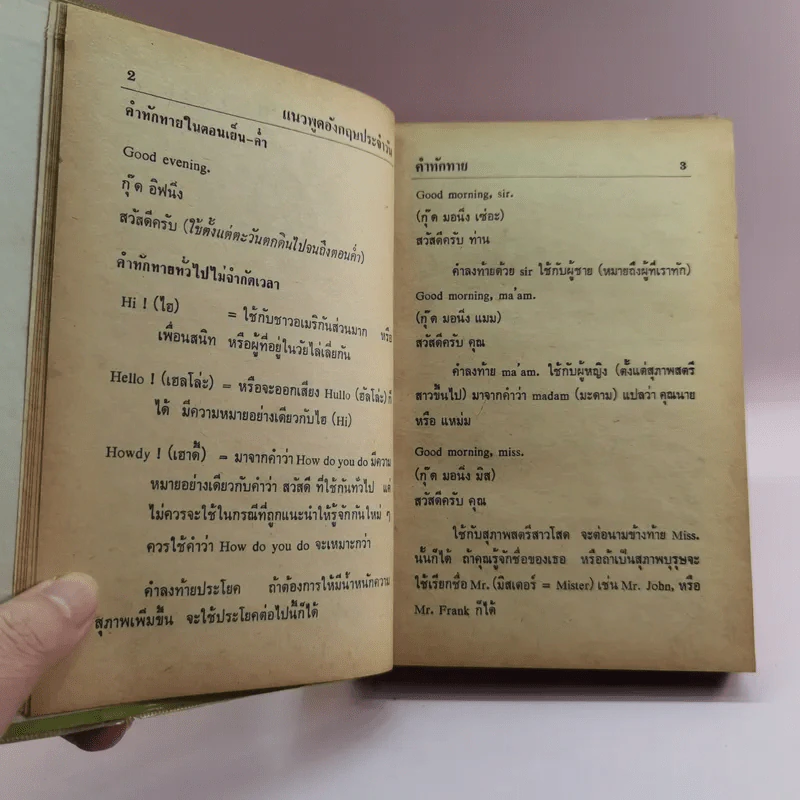 2
แนวพูดอังกฤษประจำวัน
คำทักทายในตอนเย็น-ค่ำ
Good evening.
กุ๊ด อิฟนึ่ง
สวัสดีครับ (ใช้ตั้งแต่ตะวันตกดินไปจนถึงตอนค่ำ)
คำทักทายทั่วไปไม่จำกัดเวลา
Hi ! (ไฮ) = ใช้กับชาวอเมริกันส่วนมาก หรือ
เพื่อนสนิท หรือผู้ที่อยู่ในวัยไล่เลี่ยกัน
Hello ! (เฮลโล่ะ) = หรือจะออกเสียง Hullo (ฮัลโล่ะ) ก็
ได้ มีความหมายอย่างเดียวกับไฮ (Hi)
Howdy ! (เฮาดี้) = มาจากคำว่า How do you do มีความ
หมายอย่างเดียวกับคำว่า สวัสดี ที่ใช้กันทั่วไป แต่
ไม่ควรจะใช้ในกรณีที่ถูกแนะนำให้รู้จักกันใหม่ ๆ
ควรใช้คำว่า How do you do จะเหมาะกว่า
คำลงท้ายประโยค ถ้าต้องการให้มีน้ำหนักความ
สุภาพเพิ่มขึ้น จะใช้ประโยคต่อไปนี้ก็ได้
คำทักทาย 3
Good morning, sir.
(กุ๊ด มอนึ่ง เซ่อะ)
สวัสดีครับ ท่าน
คำลงท้ายด้วย sir ใช้กับผู้ชาย (หมายถึงผู้ที่เราทัก)
Good morning, ma'am.
(กุ๊ด มอนึ่ง แมม)
สวัสดีครับ คุณ
คำลงท้าย ma'am. ใช้กับผู้หญิง (ตั้งแต่สุภาพสตรี
สาวขึ้นไป) มาจากคำว่า madam (มะดาม) แปลว่า คุณนาย
หรือ แหม่ม
Good morning, miss.
(กุ๊ด มอนึ่ง มิส)
สวัสดีครับ คุณ
ใช้กับสุภาพสตรีสาวโสด จะต่อนามข้างท้าย Miss.
นั้นก็ได้ ถ้าคุณรู้จักชื่อของเธอ หรือถ้าเป็นสุภาพบุรุษจะ
ใช้เรียกชื่อ Mr. (มิสเตอร์ = Mister) เช่น Mr. John, หรือ
Mr. Frank ก็ได้